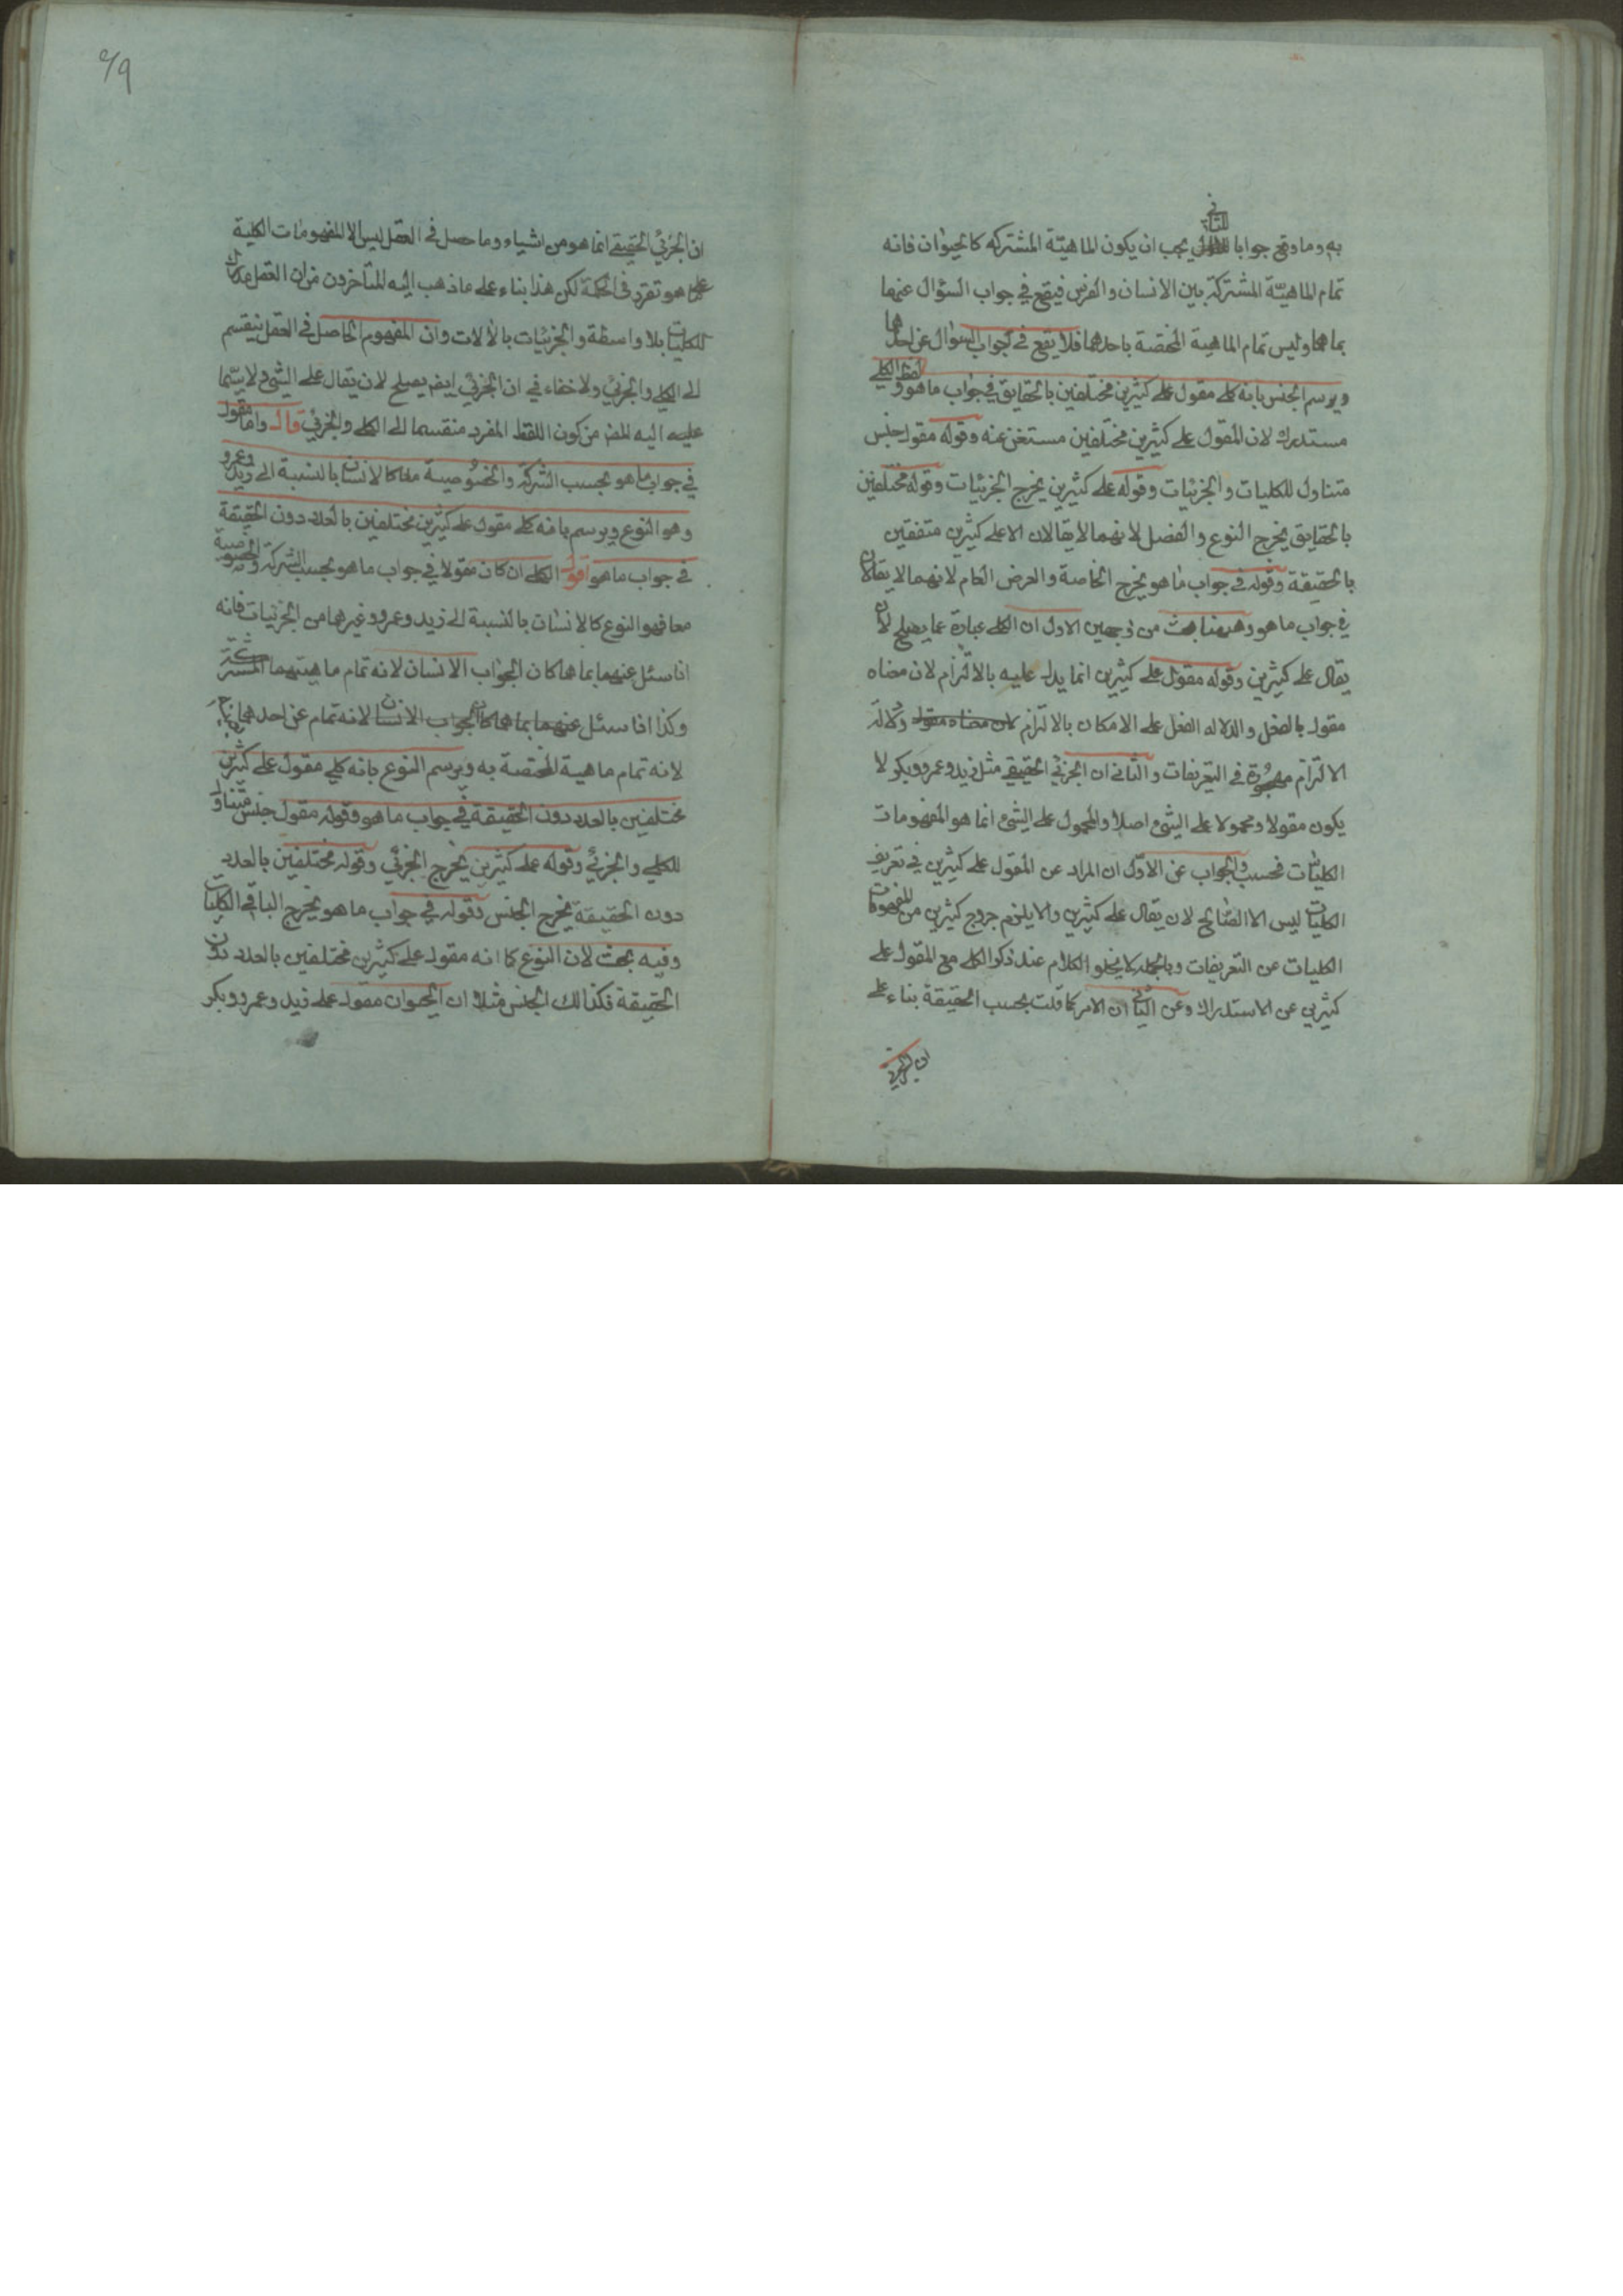 به وما وقع جوابا الثاني يجب ان يكون الماهيّة المشتركه كالحيوان فانه
تمام الماهيّة المشتركة بين الانسان والفرس فيقع في جواب السؤال عنهما
بما هما وليس تمام الماهية المختصة باحدهما فلا يقع في جواب السؤال عن احدهما
ويرسم الجنس بانه كلي مقول على كثيرين مختلفين بالحقايق في جواب ما هو ولفظ الكلي
مستدرك لان المقول على كثيرين مختلفين مستغن عنه وقوله مقول جنس
متناول للكليات والجزئيات وقوله على كثيرين يخرج الجزئيات وقوله مختلفين
بالحقايق يخرج النوع والفصل لانهما لا يقالان الا على كثيرين متفقين
بالحقيقة وقوله في جواب ما هو يخرج الخاصة والعرض العام لانهما لا يقالان
في جواب ما هو وههنا بحث من وجهين الاول ان الكلي عبارة عما يصلح لان
يقال على كثيرين وقوله مقول على كثيرين انما يدل عليه بالالتزام لان معناه
مقول بالفعل والدلاله الفعل على الامكان بالالتزام لان معناه مقول ودلالة
الالتزام مهجورة في التعريفات والثاني ان الجزئي الحقيقي مثل زيد وعمرو وبكر لا
يكون مقولا ومحمولا على الشئ اصلا والمحمول على الشئ انما هو المفهومات
الكليات فحسب والجواب عن الاول ان المراد عن المقول على كثيرين في تعريف
الكليات ليس الا الصالح لان يقال على كثيرين والا يلزم خروج كثيرين من المفهومات
الكليات عن التعريفات وبالجمله لا يخلو الكلام عند ذكر الكلي مع المقول على
كثيرين عن الاستدراك وعن الثاني ان الامر كما قلت بحسب الحقيقة بناء على
ان الجزئي
٢٩
ان الجزئي الحقيقي انما هو من اشياء وما حصل في العقل ليس الا المفهومات الكلية
على ما هو تقرر في الحكمة لكن هذا بناء على ما ذهب اليه المتأخرون من ان العقل مدرك
للكليات بلا واسطة والجزئيات بالالات وان المفهوم الحاصل في العقل ينقسم
الى الكلي والجزئي ولا خفاء في ان الجزئي ايضم يصلح لان يقال على الشئ ولا سيّما
عليه اليه المض من كون اللفظ المفرد منقسما الى الكلي والجزئي قال واما مقول
في جواب ما هو بحسب الشركة والخصوصية معا كالانسان بالنسبة الى زيد وعمرو
وهو النوع ويرسم بانه كلي مقول على كثيرين مختلفين بالعدد دون الحقيقة
في جواب ما هو اقول الكلي ان كان مقولا في جواب ما هو بحسب الشركة والخصوصية
معا فهو النوع كالانسان بالنسبة الى زيد وعمرو وغيرهما من الجزئيات فانه
اذا سئل عنهما بما هما كان الجواب الانسان لانه تمام ماهيتهما المشتركة
وكذا اذا سئل عنهما بما هما كان الجواب الانسان لانه تمام عن احدهما
لانه تمام ماهية المختصة به ويرسم النوع بانه كلي مقول على كثيرين
مختلفين بالعدد دون الحقيقة في جواب ما هو وقوله مقول جنس متناول
للكلي والجزئي وقوله على كثيرين يخرج الجزئي وقوله مختلفين بالعدد
دون الحقيقة يخرج الجنس وقوله في جواب ما هو يخرج الباقي الكليات
وفيه بحث لان النوع كما انه مقول على كثيرين مختلفين بالعدد دون
الحقيقة فكذالك الجنس مثلا ان الحيوان مقول على زيد وعمرو وبكر